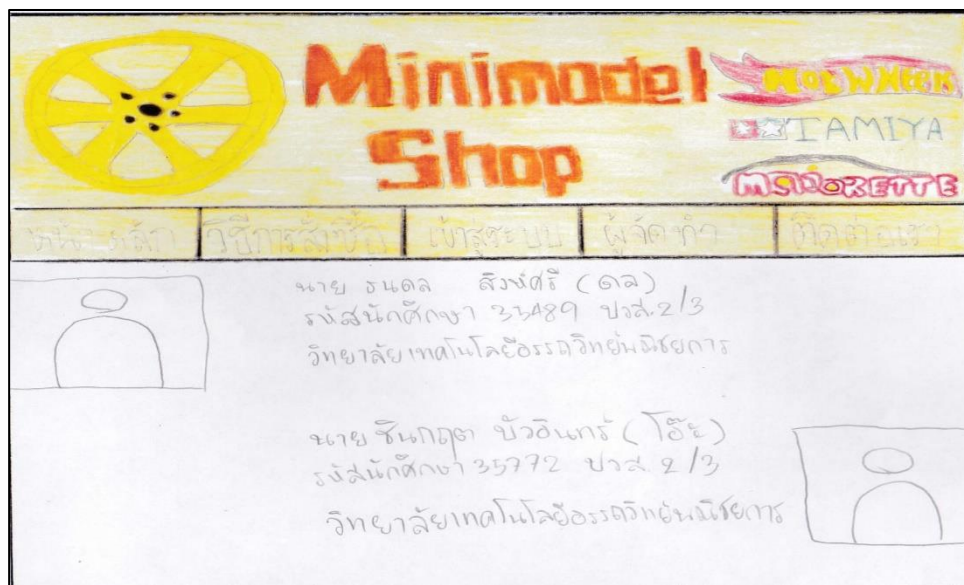 Minimodel
Shop
Hot Wheels
TAMIYA
MAJORETTE
หน้าหลัก วิธีการสั่งซื้อ เข้าสู่ระบบ ผู้จัดทำ ติดต่อเรา
นาย ธนดล สิงห์ศรี (ดล)
รหัสนักศึกษา 33489 ปวส.2/3
วิทยาลัยเทคโนโลยีอรรถวิทย์พณิชยการ
นาย ชินกฤต บัวอินทร์ (โอ๊ะ)
รหัสนักศึกษา 35772 ปวส 2/3
วิทยาลัยเทคโนโลยีอรรถวิทย์พณิชยการ